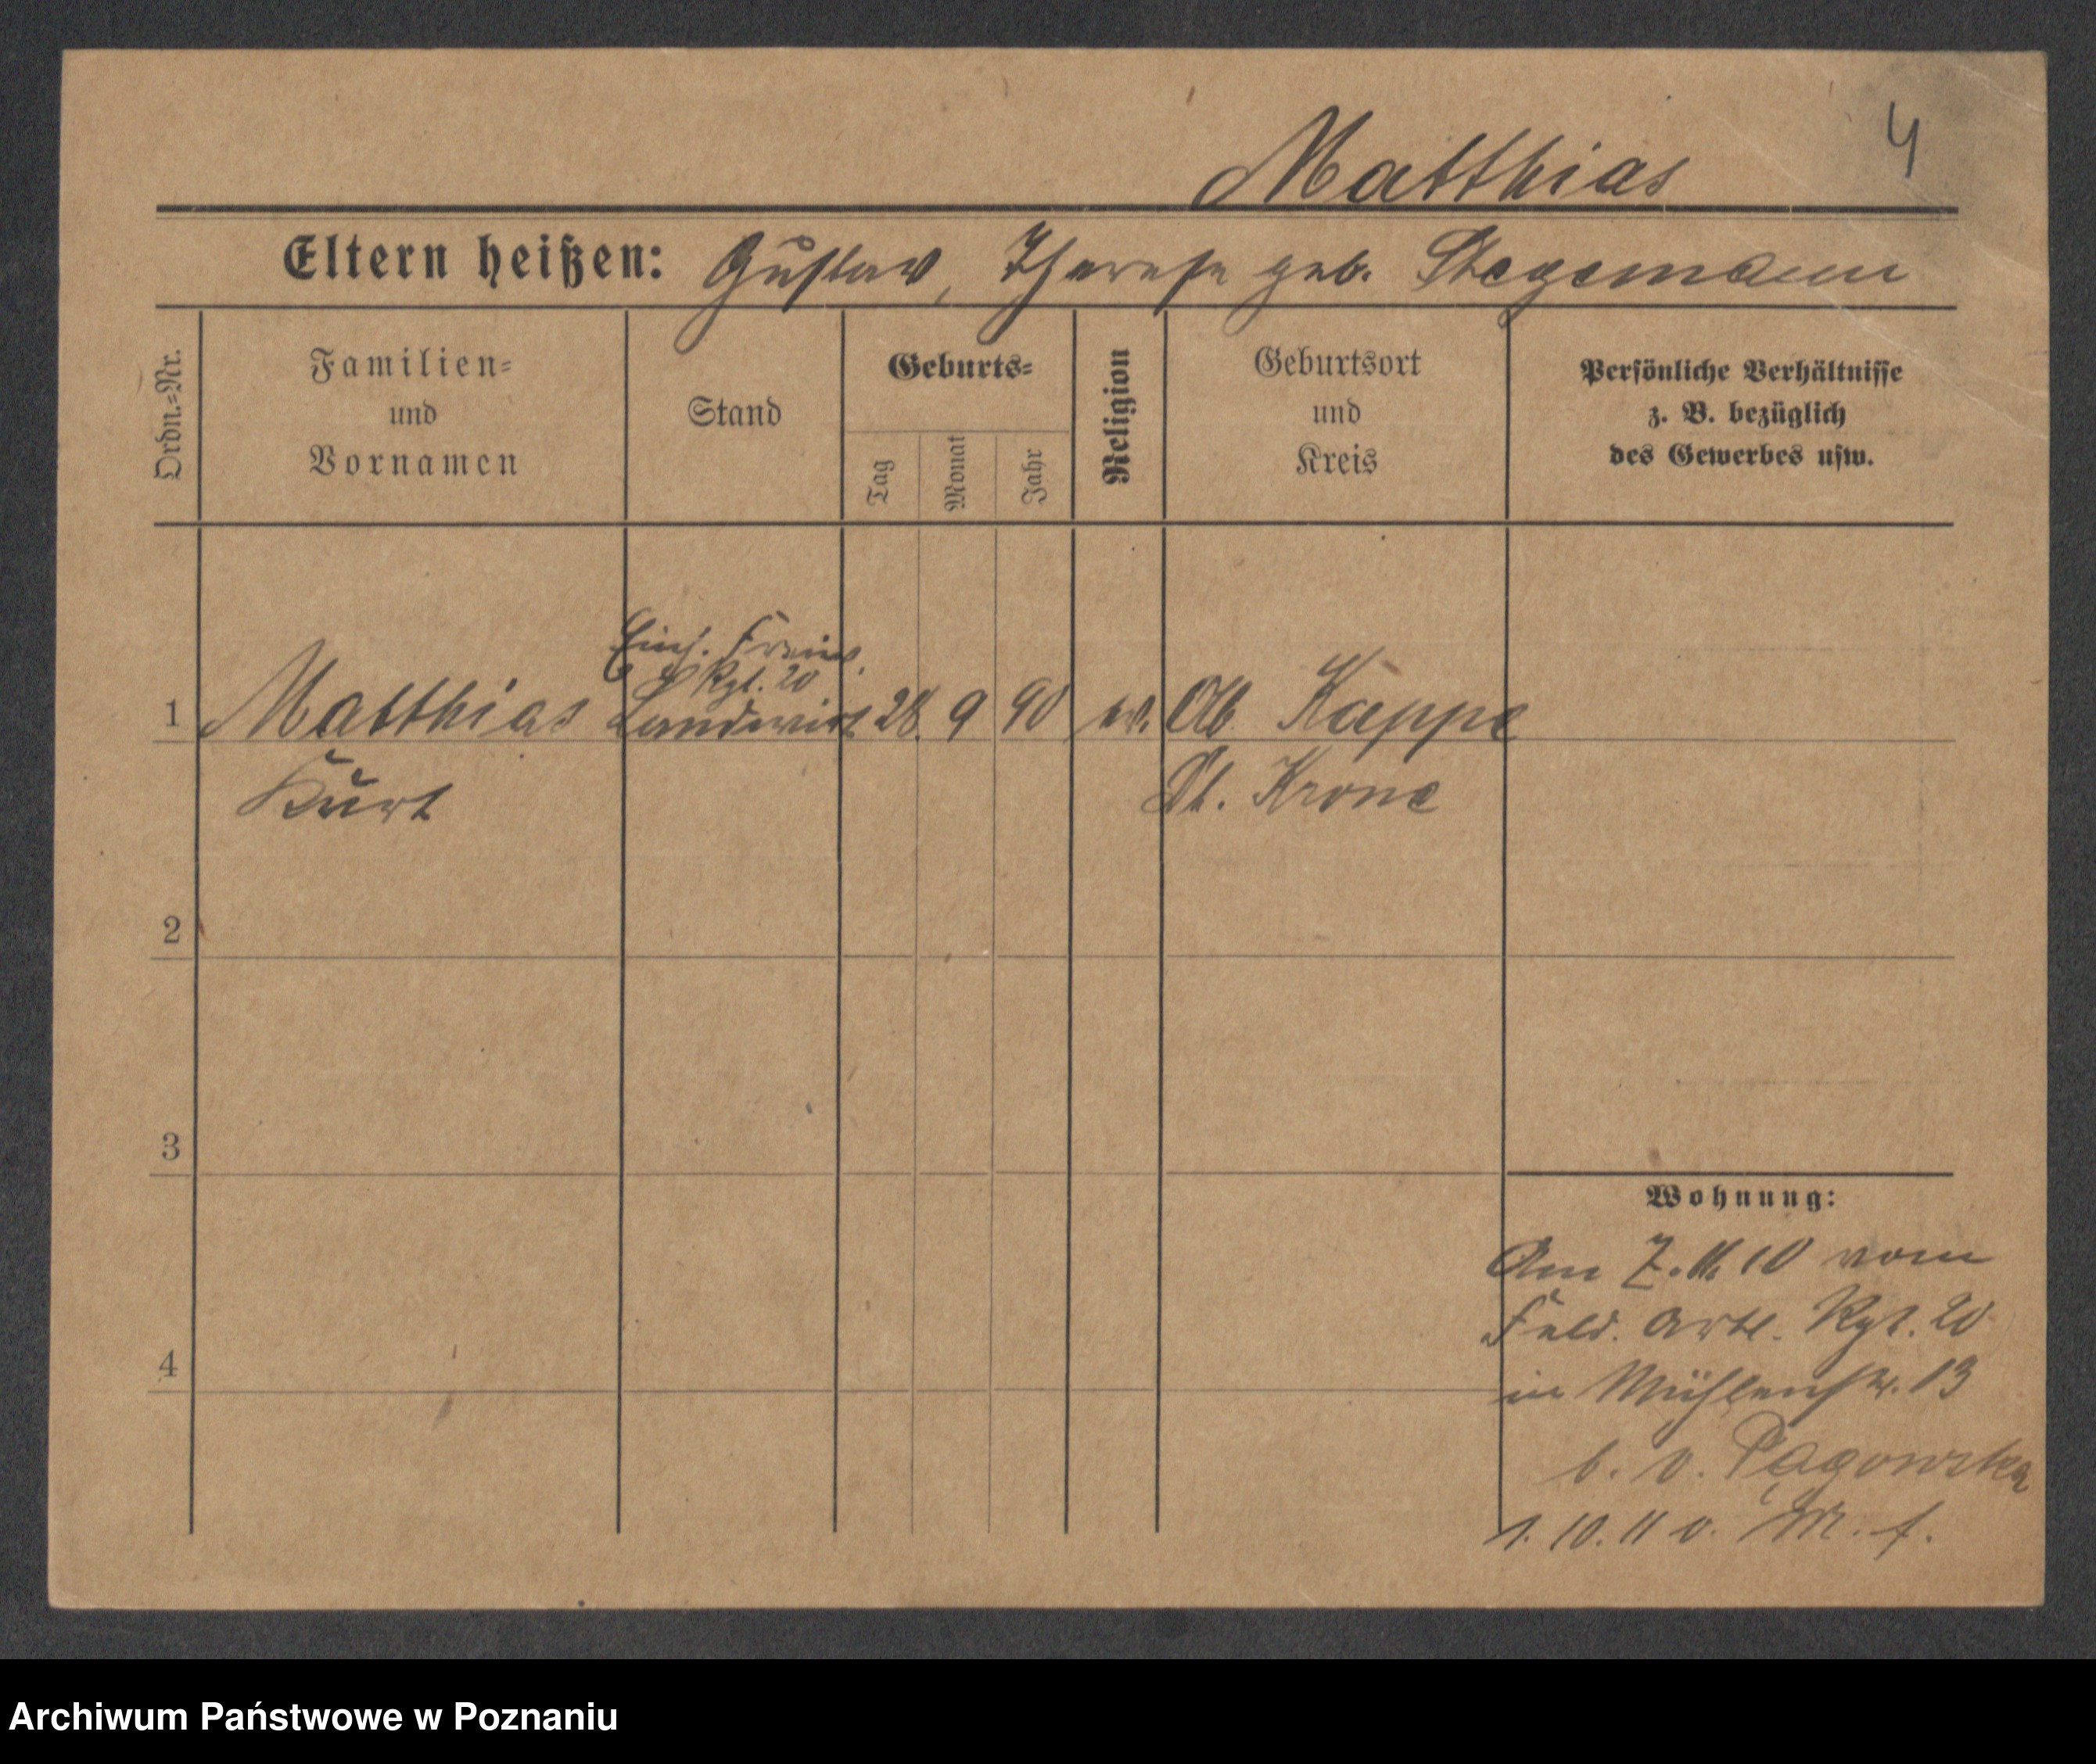 Matthias 4
Eltern heißen: Gustav, Therese geb. Stegemann
Ordn.=Nr.
Familien=
und
Vornamen
Stand
Geburts=
Tag
Monat
Jahr
Religion
Geburtsort
und
Kreis
Persönliche Verhältnisse
z. B. bezüglich
des Gewerbes usw.
Einj. Freiw.
Rgt. 20
1 Matthias Landwirt 28. 9 90 ev. Kappe
Kurt Dt. Krone
2
3
4
Wohnung:
Am 7. 10 vom
Feld. Artl. Rgt. 20
in Mühlenstr. 13
b. v. Pągowska
1. 10. 11 v. M. f.
Archiwum Państwowe w Poznaniu